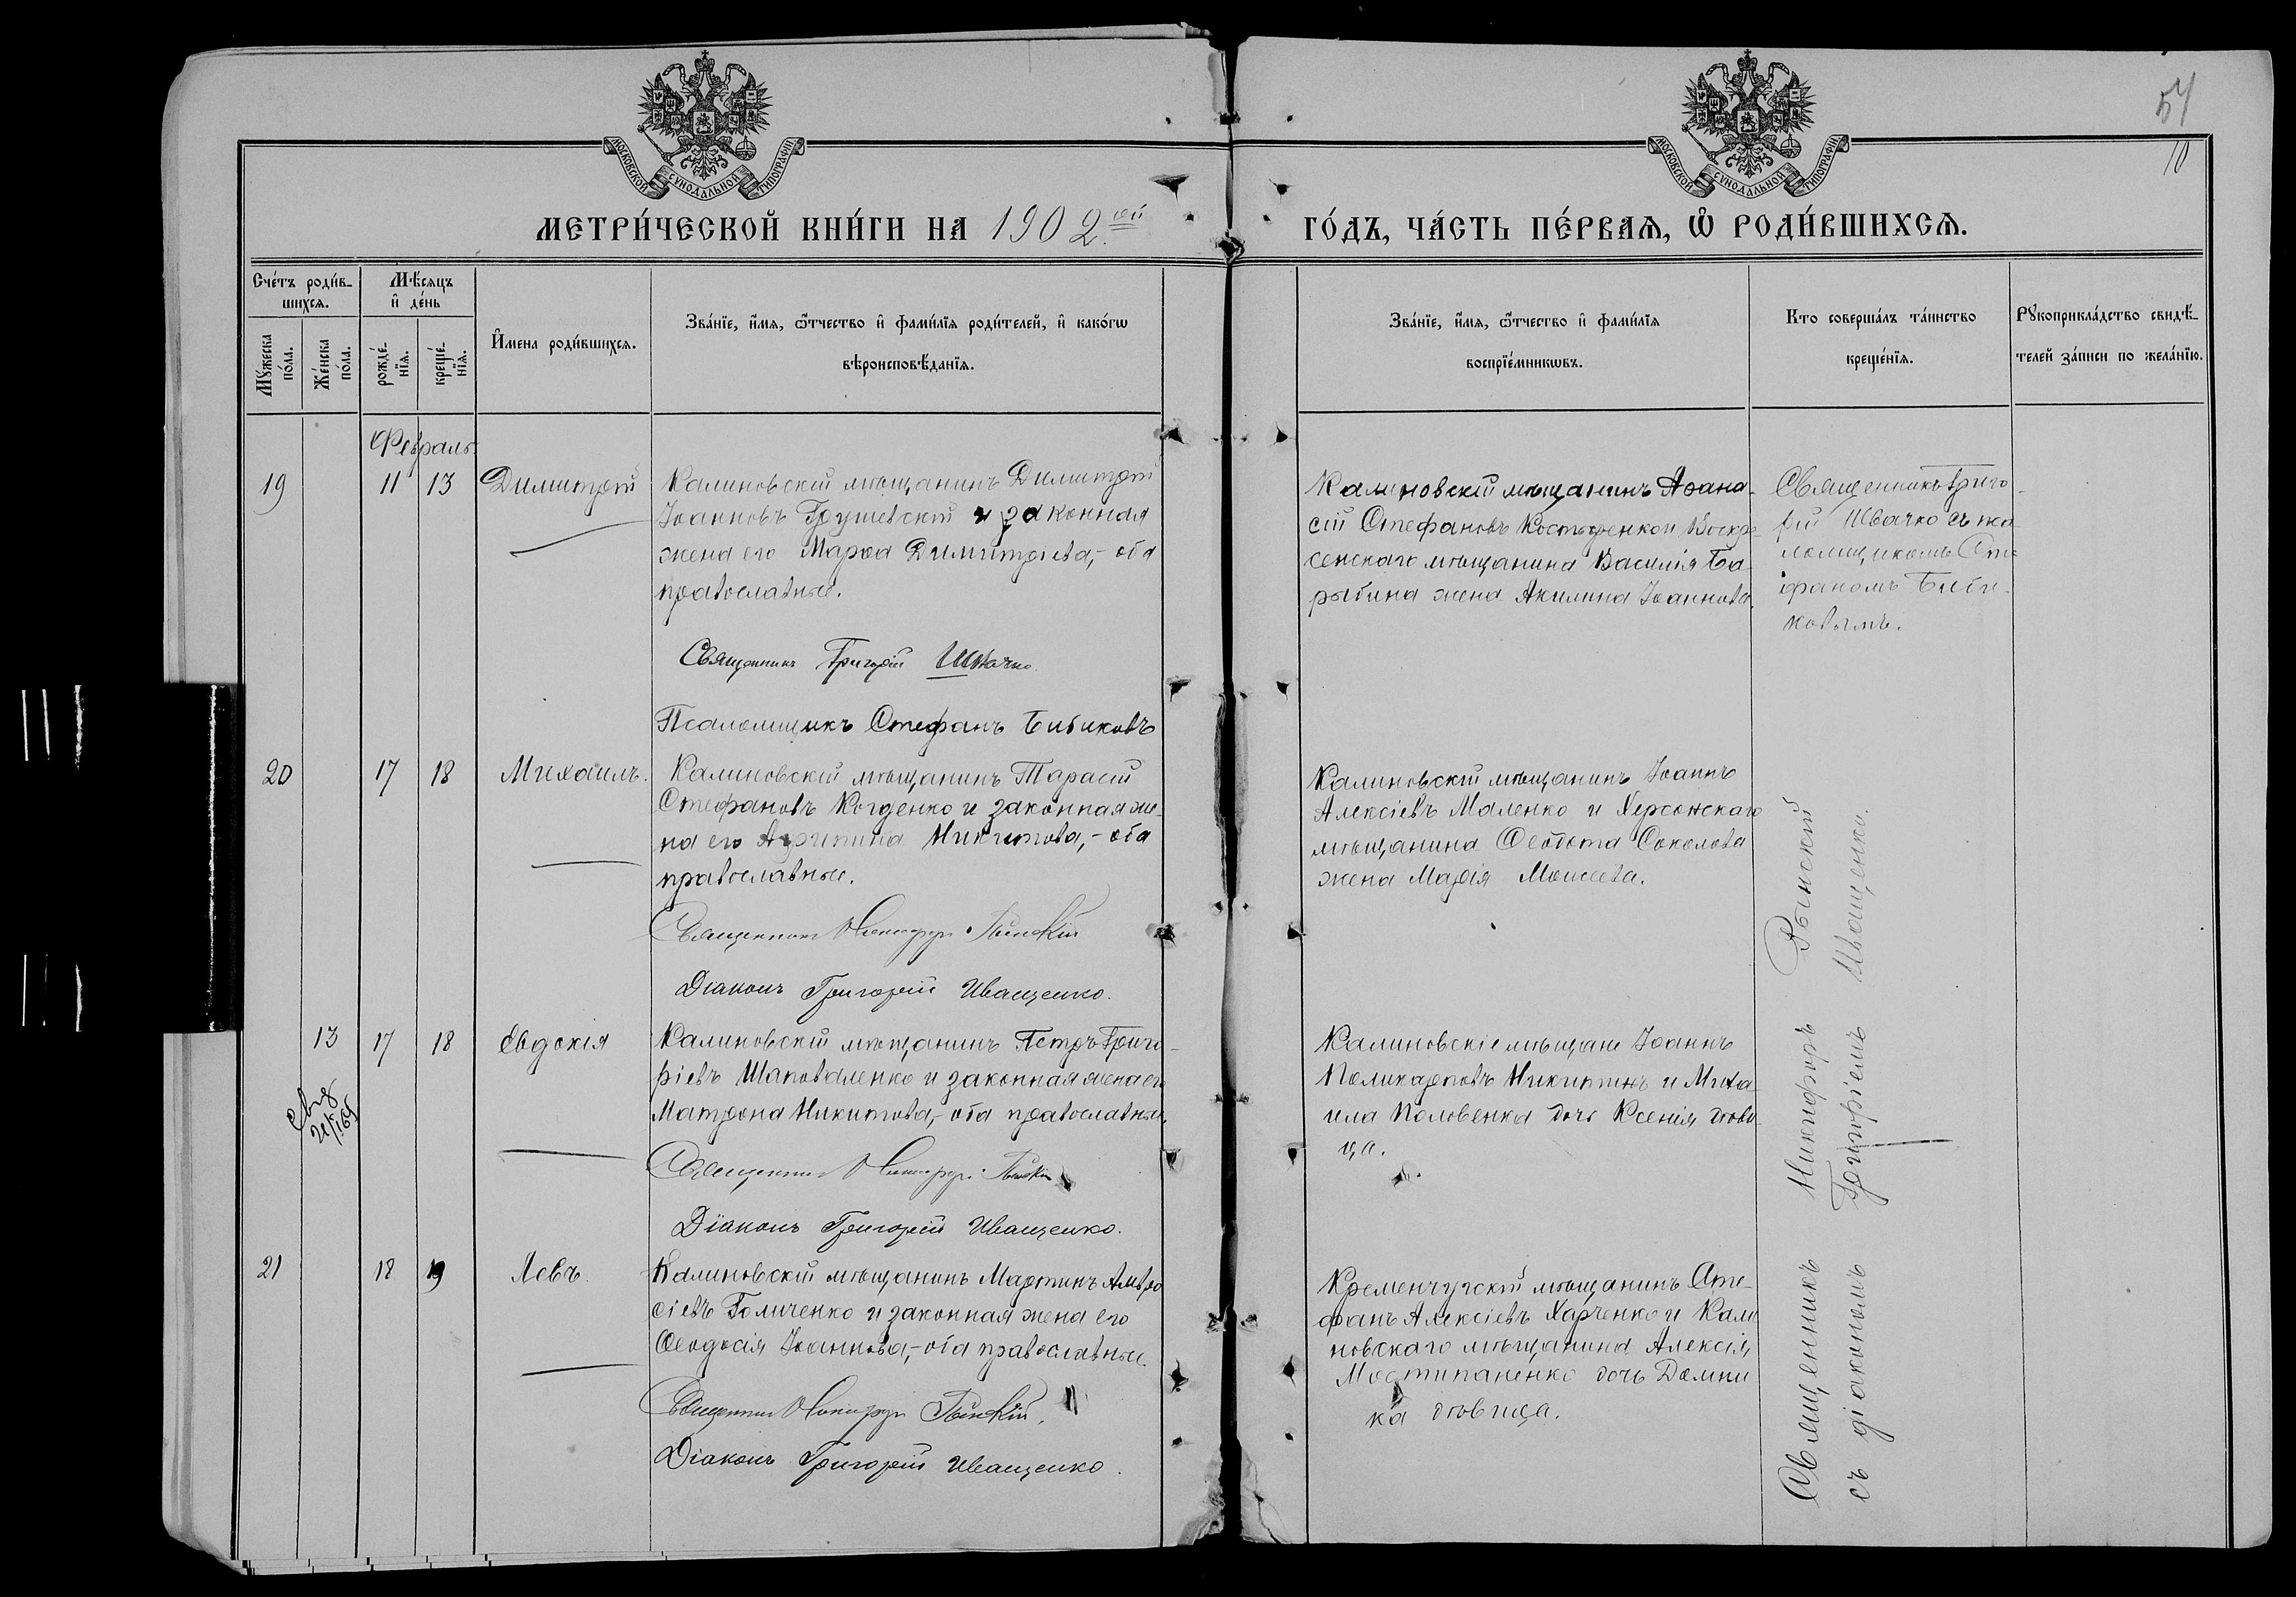 54
10
МОСКОВСКОЙ СѴНОДАЛЬНОЙ ТИПОГРАФІИ
МОСКОВСКОЙ СѴНОДАЛЬНОЙ ТИПОГРАФІИ
МЕТРИ́ЧЕСКОЙ КНИ́ГИ НА 1902.ой ГО́ДЪ, ЧА́СТЬ ПЕ́РВАѦ, Ѡ РОДИ́ВШИХСѦ.
Сче́тъ роди́в-
шихсѧ.
Мꙋжеска по́ла.
Же́нска по́ла.
Мѣ́сѧцъ
и҆ де́нь
рожде́-
нїѧ.
креще́-
нїѧ.
И҆мена роди́вшихсѧ.
Зва́нїе, и҆́мѧ, ѻ҆́тчество и҆ фами́лїѧ роди́телей, и҆ како́гѡ
вѣроисповѣ́данїѧ.
Зва́нїе, и҆́мѧ, ѻ҆́тчество и҆ фами́лїѧ
воспрїе́мникѡвъ.
Кто соверша́лъ та́инство
креще́нїѧ.
Рꙋкоприкла́дство свидѣ́-
телей за́писи по жела́нїю.
Февраль.
19 11 13 Димитрій
Калиновскій мѣщанинъ Димитрій
Іоанновъ Грушевскій и законная
жена его Марѳа Димитріева,- оба
православные.
Священникъ Григорій Швачко
Псаломщикъ Стефанъ Бибиковъ
Калиновскій мѣщанинъ Аѳана-
сій Стефановъ и Воскре-
сенскаго мѣщанина Василія Ба
рыбина жена Акилина Іоаннова.
Священникъ Григо-
рій Швачко съ пса-
ломщикомъ Сте-
фаномъ Биби-
ковымъ.
20 17 18 Михаилъ.
Калиновскій мѣщанинъ Тарасій
Стефановъ Когденко и законная же-
на его Никитова,- оба
православные.
Священникъ Никифоръ Рынскій
Діаконъ Григорій Иващенко.
Калиновскій мѣщанинъ Іоаннъ
Алексіевъ Маленко и Херсонскаго
мѣщанина Ѳеодота Соколова
жена Марія Моисеева.
13 17 18 Евдокія
Калиновскій мѣщанинъ Петръ Григо-
ріевъ Шаповаленко и законная жена его
Матрона Никитова,- оба православные.
Священникъ Никифоръ Рынскій
Діаконъ Григорій Иващенко.
Калиновскіе мѣщане Іоаннъ
Поликарповъ Никитинъ и Миха
ила Половенка дочь Ксенія дѣви-
ца.
21 18 19 Левъ.
Калиновскій мѣщанинъ Мартинъ Амвро
сіевъ Голиченко и законная жена его
Ѳеодосія Іоаннова,- оба православные.
Священникъ Никифоръ Рынскій.
Діаконъ Григорій Иващенко.
Кременчугскій мѣщанинъ Сте-
фанъ Алексіевъ Харченко и Кали
новскаго мѣщанина Алексія
дочь Домни
ка дѣвица.
Священникъ Никифоръ Рынскій
съ діакономъ Григоріемъ Иващенко.